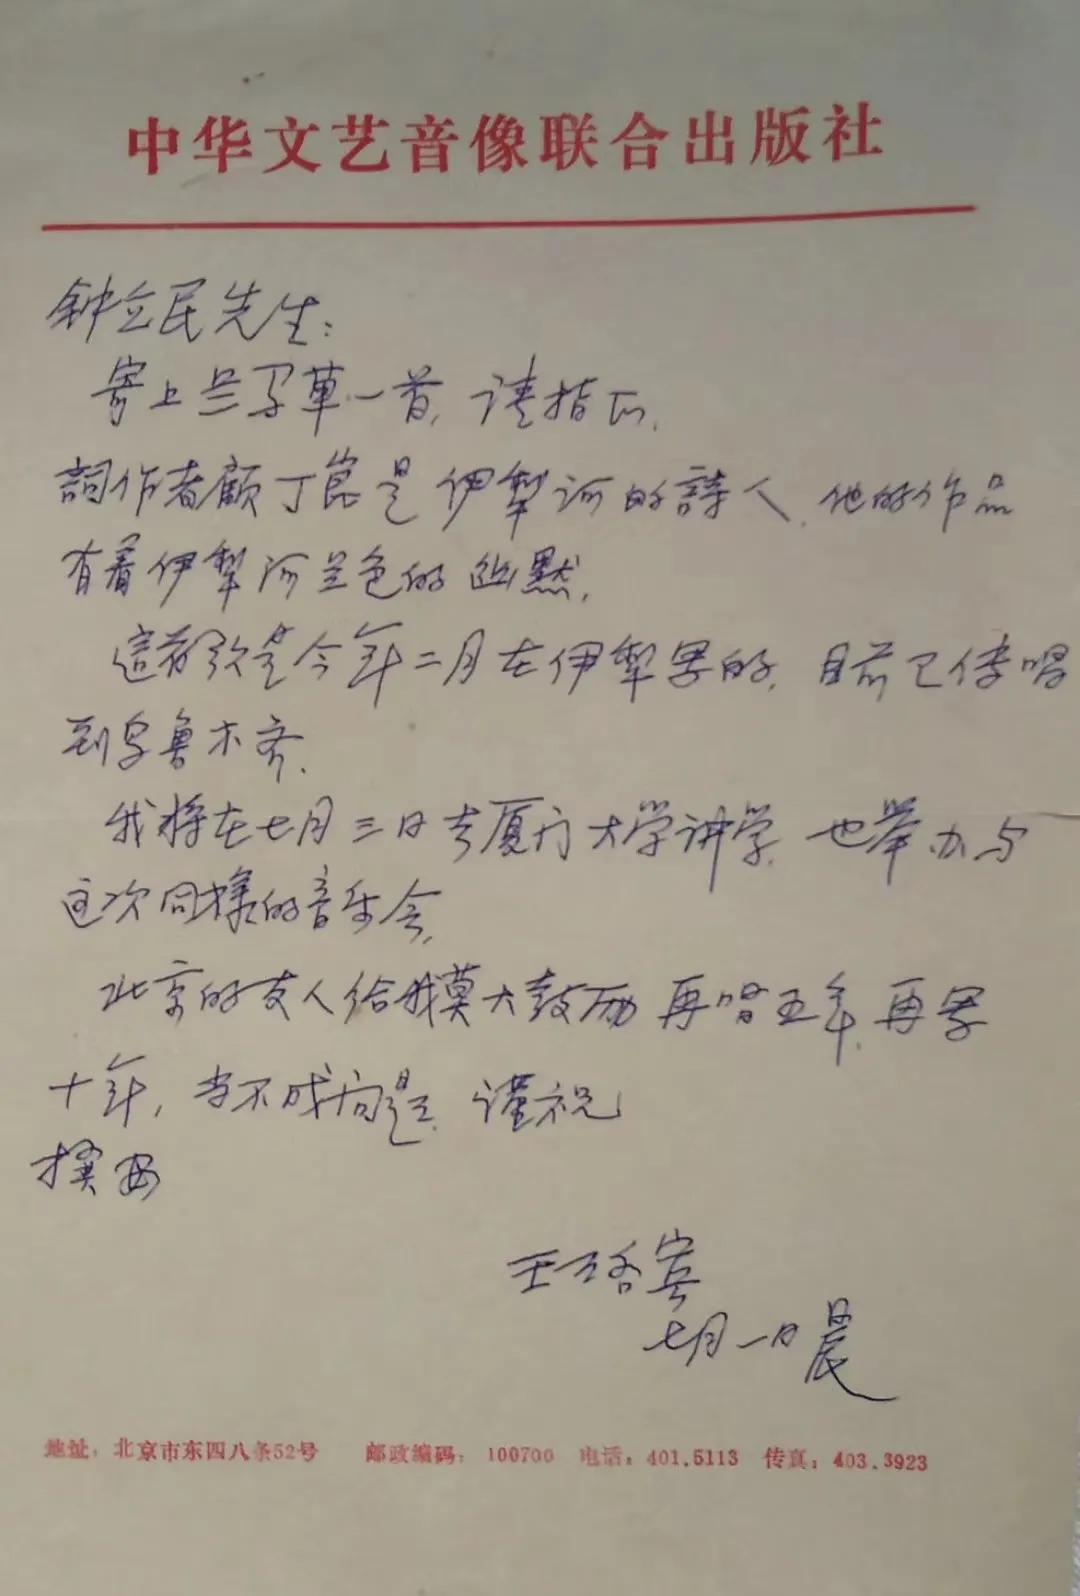 中华文艺音像联合出版社
钟立民先生：
寄上兰写草一首，请指正，
詞作者顾丁昆是伊犁河的詩人，他的作品
有着伊犁河兰色的幽默，
這首歌是今年二月在伊犁写的，目前已传唱
到乌鲁木齐，
我将在七月三日去厦门大学讲学，也举办与
这次同樣的音乐会，
北京的友人给我莫大鼓励 再唱五年，再写
十年，当不成问题，谨祝
撰安
王洛宾
七月一日晨
地址：北京市东四八条52号 邮政编码：100700 电话：401.5113 传真：403.3923